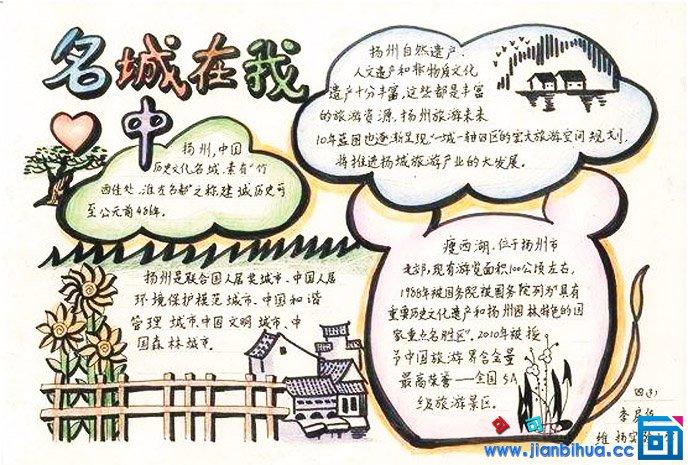 名城在我
中
扬州，中国
历史文化名城，素有“竹
西佳处，淮左名都”之称，建城历史可
至公元前486年。
扬州自然遗产、
人文遗产和非物质文化
遗产十分丰富，这些都是丰富
的旅游资源，扬州旅游未来
10年蓝图也逐渐呈现“一城一轴四区的宏大旅游空间规划，
将推进扬城旅游产业的大发展。
扬州是联合国人居奖城市、中国人居
环境保护模范城市、中国和谐
管理城市、中国文明城市、中
国森林城市。
瘦西湖，位于扬州市
北郊，现有游览面积100公顷左右，
1988年被国务院被国务院列为“具有
重要历史文化遗产和扬州园林特色的国
家重点名胜区”。2010年被授
予中国旅游界含金量
最高荣誉——全国5A
级旅游景区。
www.jianbihua.cc